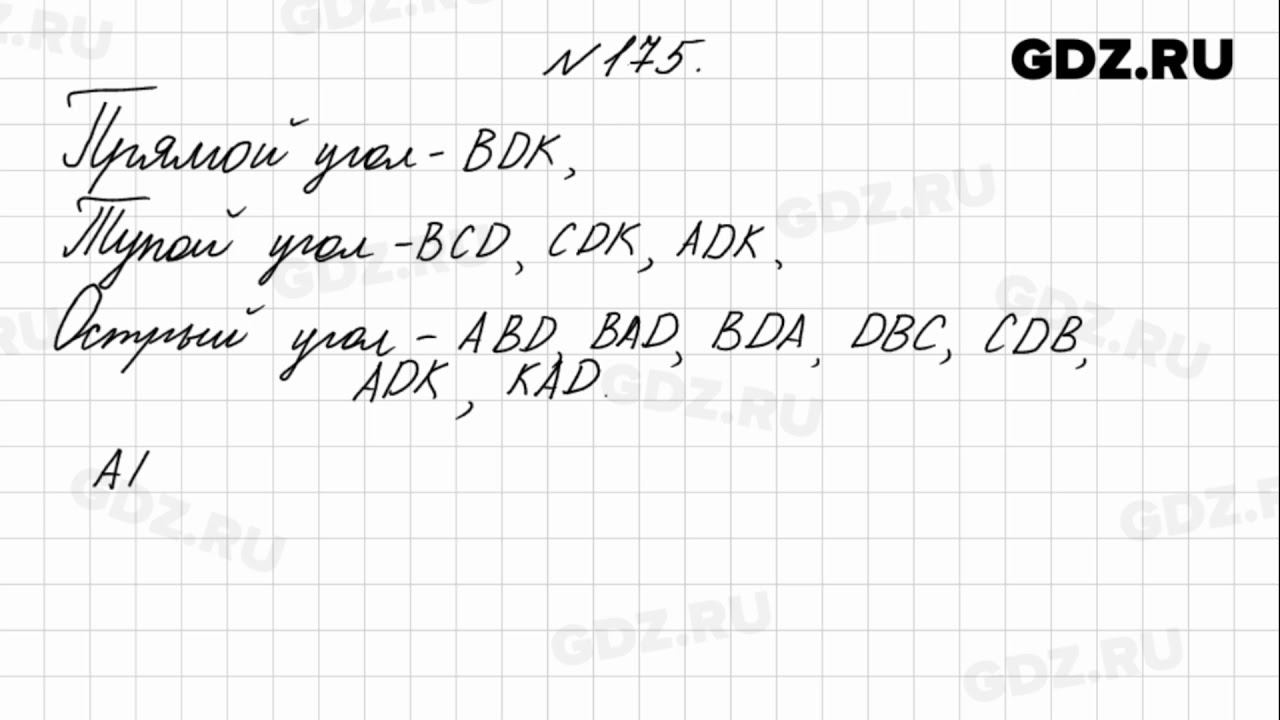 № 175.
GDZ.RU
Прямой угол - BDK,
Тупой угол - BCD, CDK, ADK,
Острый угол - ABD, BAD, BDA, DBC, CDB,
ADK, KAD.
A1